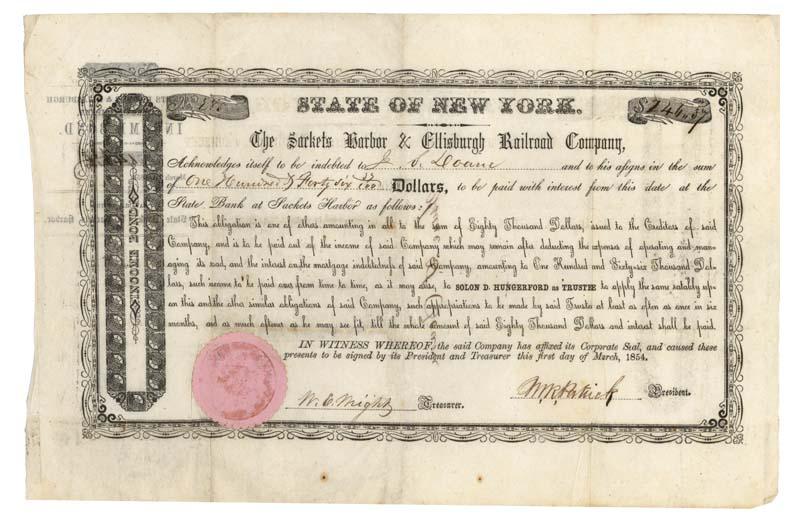 STATE OF NEW YORK.
The Sackets Harbor & Ellisburgh Railroad Company,
Acknowledges itself to be indebted to J. S. Doane and to his assigns in the sum
of One Hundred & Forty Six Dollars, to be paid with interest from this date at the
State Bank at Sackets Harbor as follows:
This obligation is one of others amounting in all to the sum of Eighty Thousand Dollars, issued to the Creditors of said
Company, and is to be paid out of the income of said Company which may remain after deducting the expenses of operating and man-
aging its road, and the interest on the mortgage indebtedness of said Company, amounting to One Hundred and Sixty-six Thousand Dol-
lars, such income to be paid over from time to time, as it may arise, to SOLON D. HUNGERFORD as TRUSTEE to apply the same ratably up-
on this and the other similar obligations of said Company, such appropriations to be made by said Trustee at least as often as once in six
months, and as much oftener as he may see fit, till the whole amount of said Eighty Thousand Dollars and interest shall be paid.
IN WITNESS WHEREOF, the said Company has affixed its Corporate Seal, and caused these
presents to be signed by its President and Treasurer this first day of March, 1854.
W. C. Wright Treasurer. President.
INCOME BOND